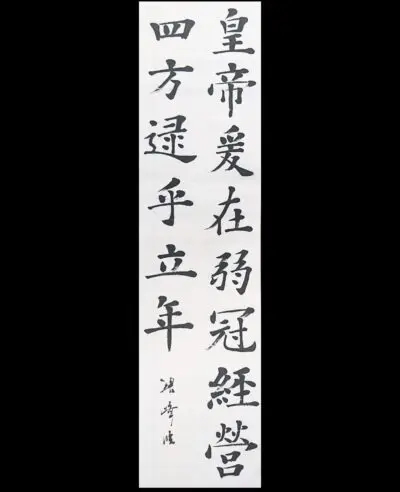 皇帝爰在弱冠經營
四方逯乎立年